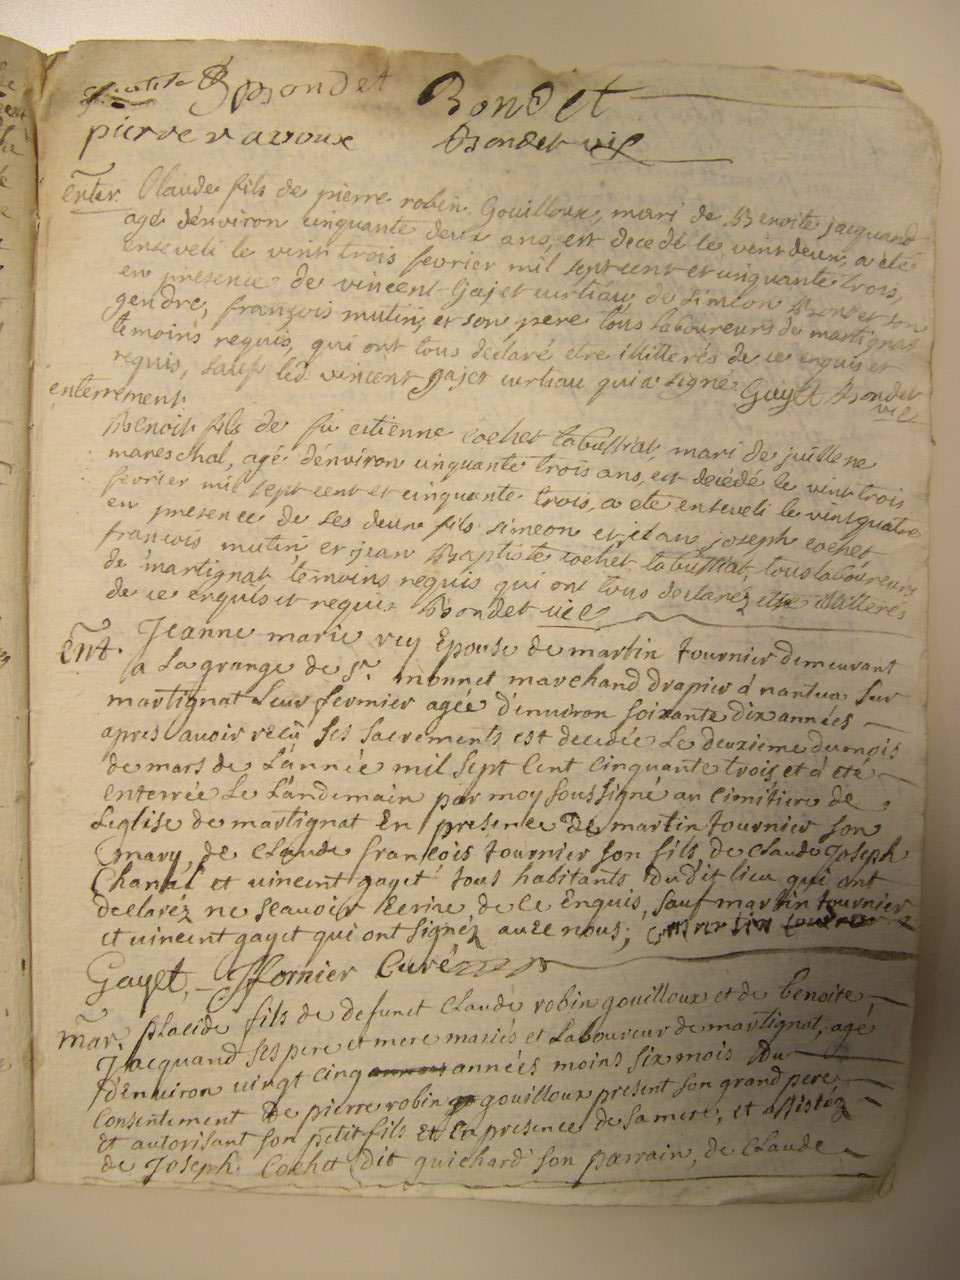 Bondet Bondet
pierre ravoux Bondet vic
enter. Claude fils de pierre robin Gouilloux, mari de Benoite jacquand
agé d'énviron cinquante deux ans, est decedé le vint deux, a eté
enseveli le vint trois fevrier mil sept cent et cinquante trois,
en presence de vincent Gajet curtiau, de simeon Bondet son
gendre, françois mutin, et son pere tous laboureurs de martignat
temoins requis, qui ont tous déclaré etre illiterés de ce enquis et
requis, sauf led vincent gajet curtiau qui a signé. Gayet Bondet
vic
enterrement.
Benoit fils de fu etienne cochet labuttiat, mari de juillene
mareschal, agé d'énviron cinquante trois ans, est decédé le vint trois
fevrier mil sept cent et cinquante trois, a eté enseveli le vint quatre
en presence de ses deux fils simeon et jean joseph cochet
francois mutin, et jean Baptiste cochet labuttiat, tous laboureurs
de martignat, témoins requis qui ont tous declaréz etre illiterés
de ce enquis et requis Bondet vic
Ent. Jeanne marie rey Epouse de martin tournier demeurant
a La grange de Sr. monnet marchand drapier á nantua sur
martignat Leur fermier agée d'environ soixante dix années
apres avoir reçû ses sacrements est decedée Le deuxieme du mois
de mars de L'année mil sept Cent cinquante trois et á eté
enterrée Le Landemain par moy soussigné au cimitiere de
Leglise de martignat En presence de martin tournier son
mary, de Claude francois tournier son fils, de Claude Joseph
Chanal et vincent gayet tous habitants dudit lieu qui ont
declaréz ne scavoir Ecrire de ce Enquis, sauf martin tournier
et vincent gayet qui ont signéz avec nous; martin
Gayet, Curé
mar. placide fils de defunct Claude robin gouilloux et de benoite
Jacquand ses pere et mere mariés et Laboureur de martignat, agé
d'Environ vingt cinq années moins six mois du
Consentement de pierre robin gouilloux present son grand pere
Et autorisant son petit fils Et En presence de sa mere, et assistéz
de Joseph Cochet dit guichard son parrain, de Claude